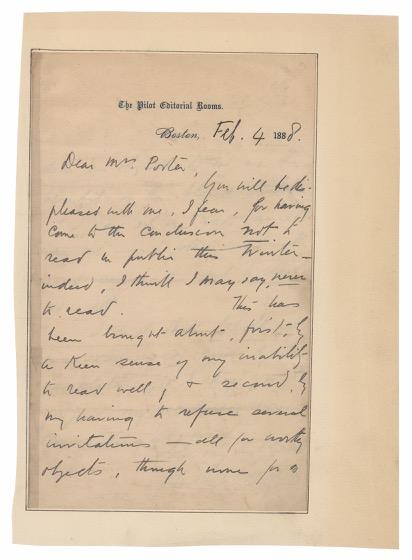 The Pilot Editorial Rooms.
Boston, Feb. 4 1888.
Dear Mrs. Porter,
You will be dis-
pleased with me, I fear, for having
come to the conclusion not to
read in public this Winter—
indeed, I think I may say, never
to read. This has
been brought about, first, by
a keen sense of my inability
to read well; & second, by
my having to refuse several
invitations — all for worthy
objects, though none for a